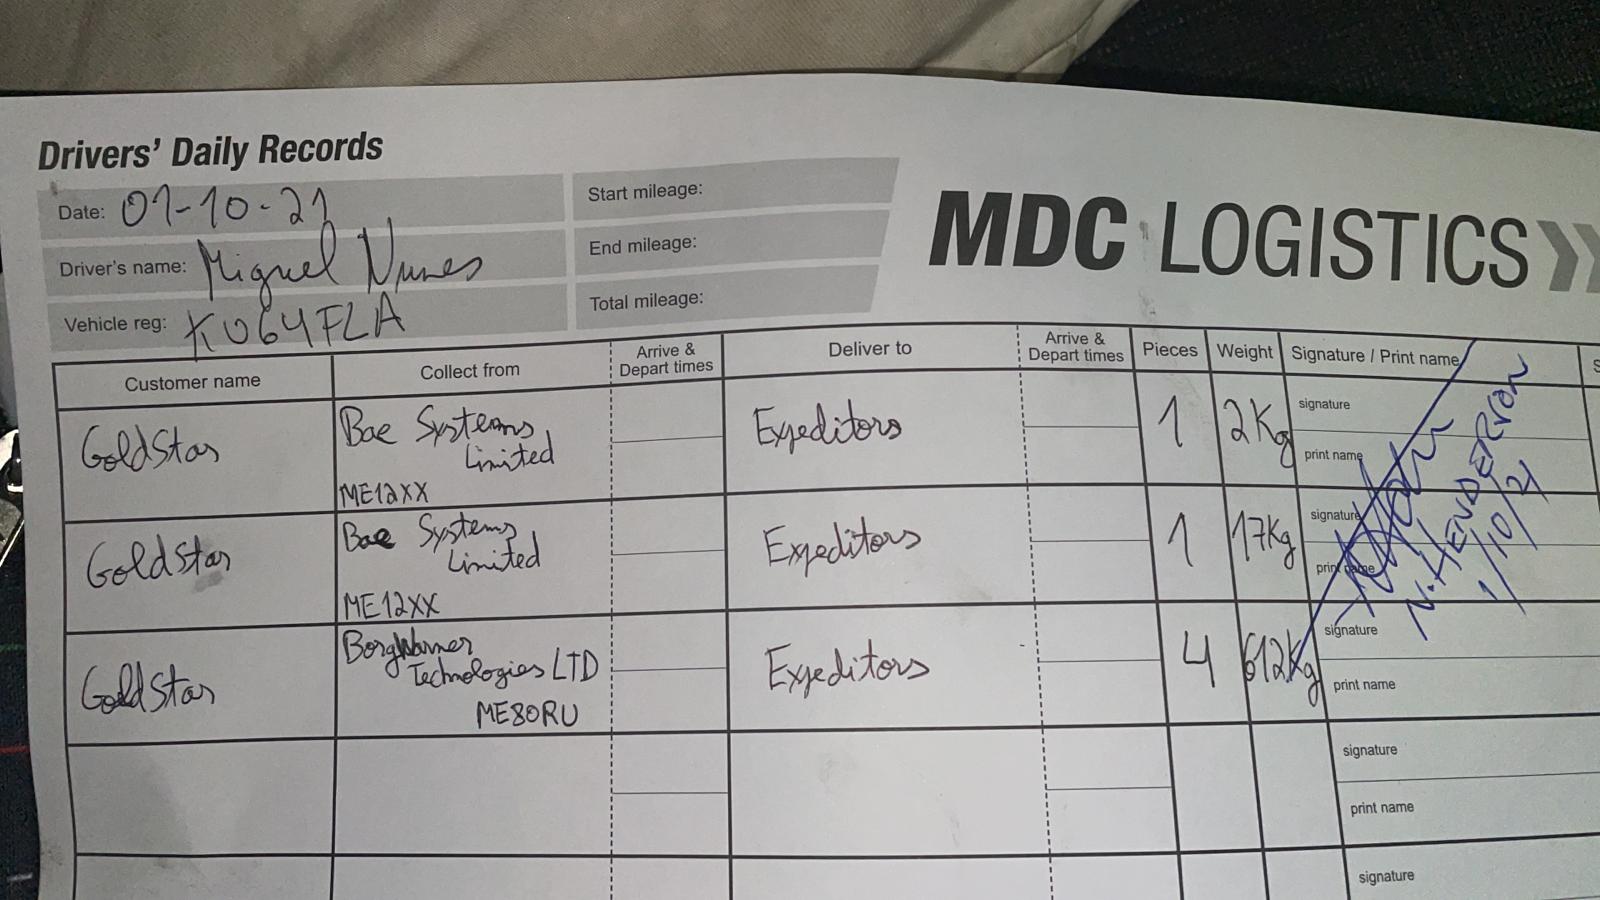 Drivers' Daily Records
Date: 01-10-21
Driver's name: Miguel Nunes
Vehicle reg: KU64FLA
Start mileage:
End mileage:
Total mileage:
MDC LOGISTICS
Customer name
Collect from
Arrive &
Depart times
Deliver to
Arrive &
Depart times
Pieces
Weight
Signature / Print name
S
GoldStar
Bae Systems
Limited
ME12XX
Expeditors
1
2Kg
signature
print name
GoldStar
Bae Systems
Limited
ME12XX
Expeditors
1
17Kg
signature
print name
N. HENDERSON
1/10/21
GoldStar
BorgWarner
Technologies LTD
ME80RU
Expeditors
4
612Kg
signature
print name
signature
print name
signature